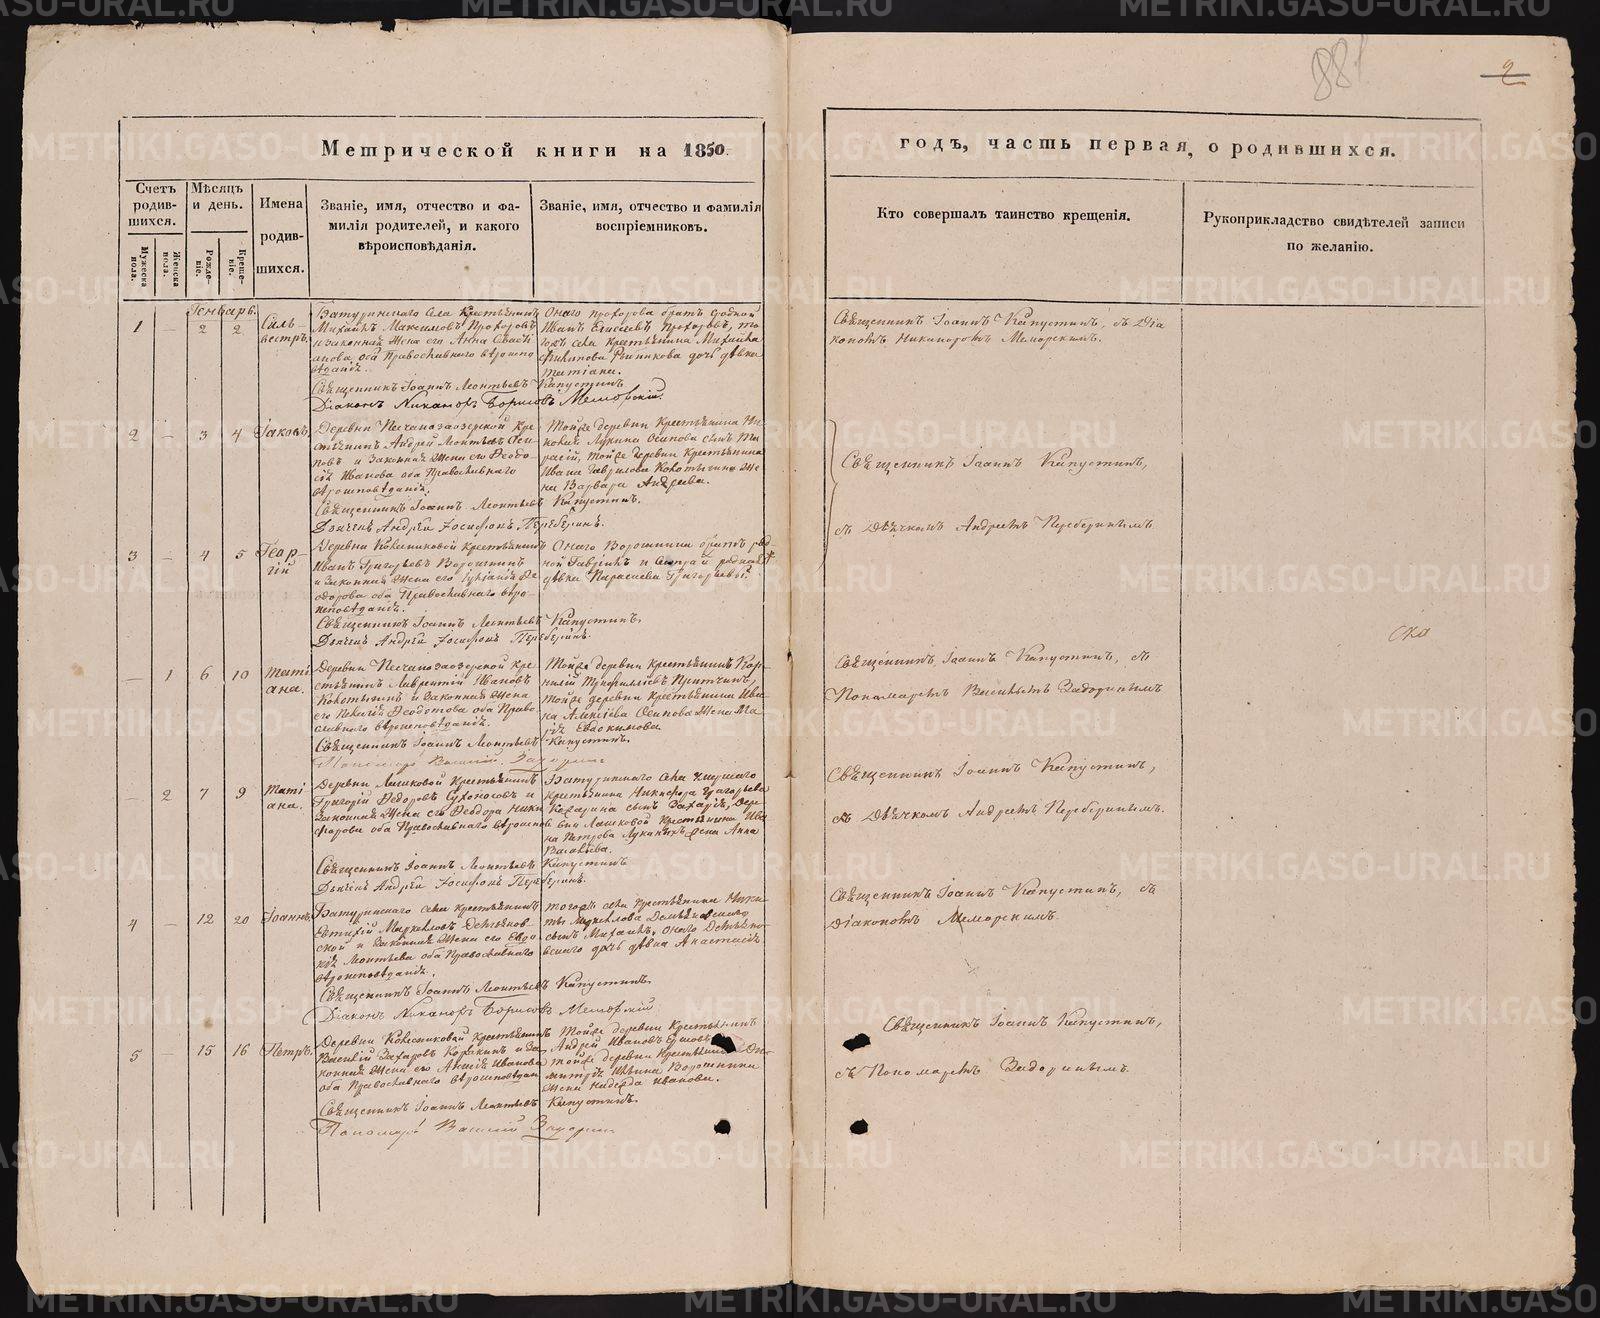 881
2
Метрической книги на 1850.
годъ, часть первая, о родившихся.
Счетъ родившихся.
Мужеска пола.
Женска пола.
Мѣсяцъ и день.
Рожденіе.
Крещеніе.
Имена родившихся.
Званіе, имя, отчество и фамилія родителей, и какого вѣроисповѣданія.
Званіе, имя, отчество и фамилія воспріемниковъ.
Кто совершалъ таинство крещенія.
Рукоприкладство свидѣтелей записи по желанію.
Генварь.
1 — 2 2 Сильвестръ
Батуринскаго села крестьянинъ
Михаилъ Максимовъ Прохоровъ
и законная жена его Анна
оба Православнаго вѣроисповѣданія.
Онаго Прохорова братъ родной
Иванъ Прохоровъ, того жъ села крестьянина Михаила
дочь дѣвка
Татіана.
Священникъ Іоаннъ Леонтьевъ Капустинъ
Діаконъ Никаноръ Борисовъ Меморскій.
Священникъ Іоаннъ Капустинъ, съ Діакономъ Никаноромъ Меморскимъ.
2 — 3 4 Іаковъ
Деревни Песчаноозерской крестьянинъ Андрей Леонтьевъ Осиповъ и законная жена его Ѳеодосія Иванова оба Православнаго
вѣроисповѣданія.
Той же деревни крестьянина
Лукина Осипова сынъ Тарасій, той же деревни крестьянина
Ивана Гаврилова жена Варвара Андреева.
Священникъ Іоаннъ Леонтьевъ Капустинъ.
Дьячекъ Андрей Іосифовъ Переберинъ.
Священникъ Іоаннъ Капустинъ,
съ Дьячкомъ Андреемъ Переберинымъ
3 — 4 5 Георгій
Деревни Колесниковой крестьянинъ
Иванъ Григорьевъ Ворошнинъ
и законная жена его Ѳеодорова оба Православнаго вѣроисповѣданія.
Онаго Ворошнина братъ родной Гавріилъ и сестра родная
дѣвка Параскева Григорьевы.
Священникъ Іоаннъ Леонтьевъ Капустинъ.
Дьячекъ Андрей Іосифовъ Переберинъ.
— 1 6 10 Татіана.
Деревни Песчаноозерской крестьянинъ Лаврентій Ивановъ
и законная жена
его Пелагія Ѳеодотова оба Православнаго вѣроисповѣданія.
Той же деревни крестьянинъ Корнилій
той же деревни крестьянина Ивана Алексіева Осипова жена Марія Евдокимова
Священникъ Іоаннъ Леонтьевъ Капустинъ.
Пономарь Василій Задоринъ
Священникъ Іоаннъ Капустинъ, съ
Пономаремъ Васильемъ Задоринымъ
— 2 7 9 Татіана.
Деревни Лашковой крестьянинъ
Григорій Ѳедоровъ Сухоносовъ и
законная жена его Ѳеодора Никифорова оба Православнаго вѣроисповѣданія
Батуринскаго села
крестьянина Никифора Григорьева
сынъ Захарій, деревни Лашковой крестьянина Ивана Петрова жена Анна
Васильева.
Священникъ Іоаннъ Леонтьевъ Капустинъ
Дьячекъ Андрей Іосифовъ Переберинъ.
Священникъ Іоаннъ Капустинъ,
съ Дьячкомъ Андреемъ Переберинымъ.
4 — 12 20 Іоаннъ
Батуринскаго села крестьянинъ
Евтихій
и законная жена его Леонтьева оба Православнаго
вѣроисповѣданія.
того жъ села крестьянина Никиты
сынъ Михаилъ, онаго
дочь дѣвка Анастасія
Священникъ Іоаннъ Леонтьевъ Капустинъ.
Діаконъ Никаноръ Борисовъ Меморскій
Священникъ Іоаннъ Капустинъ, съ
Діакономъ Меморскимъ
5 — 15 16 Петръ.
Деревни Колесниковой крестьянинъ
Василій Захаровъ и законная жена его Иванова
оба Православнаго вѣроисповѣданія
Той же деревни крестьянинъ
Андрей Ивановъ
той же деревни крестьянина Димитрія Ильина Ворошнина
жена Надежда Иванова.
Священникъ Іоаннъ Леонтьевъ Капустинъ.
Пономарь Василій Задоринъ
Священникъ Іоаннъ Капустинъ,
съ Пономаремъ Задоринымъ.
METRIKI.GASO-URAL.RU